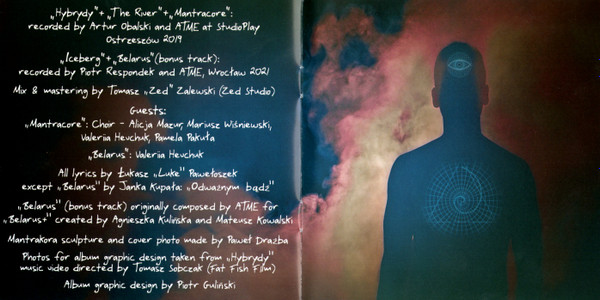 „Hybrydy"+ „The River"+„Mantracore":
recorded by Artur Obalski and ATME at StudioPlay
Ostrzeszów 2019
„Iceberg"+„Belarus"(bonus track):
recorded by Piotr Respondek and ATME, Wrocław 2021
Mix & mastering by Tomasz „Zed" Zalewski (Zed Studio)
Guests:
„Mantracore": Choir - Alicja Mazur, Mariusz Wiśniewski,
Valeriia Hevchuk, Pamela Pakuła
„Belarus": Valeriia Hevchuk
All lyrics by Łukasz „Luke" Pawełoszek
except „Belarus" by Janka Kupała: „Odważnym bądź"
„Belarus" (bonus track) originally composed by ATME for
„Belarus+" created by Agnieszka Kulińska and Mateusz Kowalski
MantraKora sculpture and cover photo made by Paweł Drażba
Photos for album graphic design taken from „Hybrydy"
music video directed by Tomasz Sobczak (Fat Fish Film)
Album graphic design by Piotr Guliński